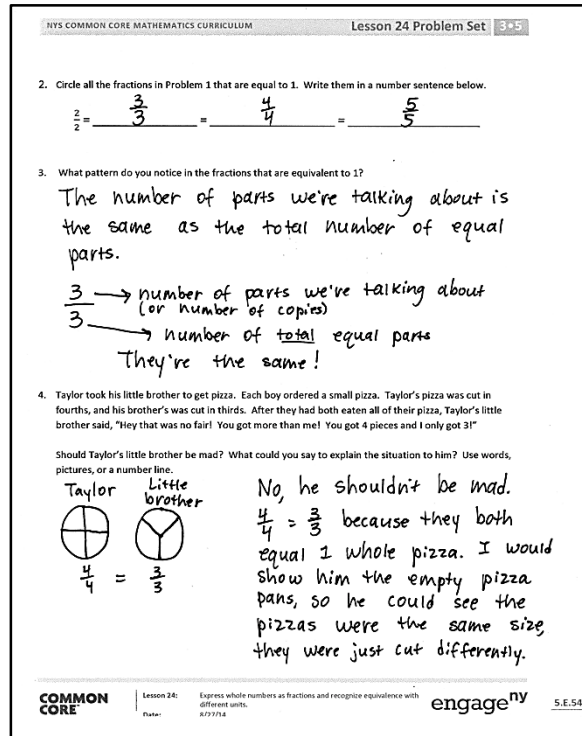 NYS COMMON CORE MATHEMATICS CURRICULUM Lesson 24 Problem Set 3•5
2. Circle all the fractions in Problem 1 that are equal to 1. Write them in a number sentence below.
2/2 = 3/3 = 4/4 = 5/5
3. What pattern do you notice in the fractions that are equivalent to 1?
The number of parts we're talking about is
the same as the total number of equal
parts.
3/3
number of parts we're talking about
(or number of copies)
number of total equal parts
They're the same!
4. Taylor took his little brother to get pizza. Each boy ordered a small pizza. Taylor's pizza was cut in
fourths, and his brother's was cut in thirds. After they had both eaten all of their pizza, Taylor's little
brother said, "Hey that was no fair! You got more than me! You got 4 pieces and I only got 3!"
Should Taylor's little brother be mad? What could you say to explain the situation to him? Use words,
pictures, or a number line.
Taylor Little
brother
4/4 = 3/3
No, he shouldn't be mad.
4/4 = 3/3 because they both
equal 1 whole pizza. I would
show him the empty pizza
pans, so he could see the
pizzas were the same size,
they were just cut differently.
COMMON
CORE
Lesson 24: Express whole numbers as fractions and recognize equivalence with
different units.
Date: 8/27/14
engage ny
5.E.54